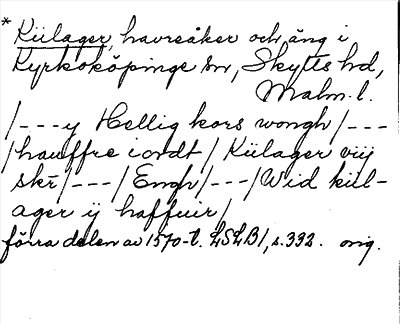 * Kiilager, havreåker och äng i
Kyrkoköpinge sn, Skytts hd,
Malm. l.
/---y Hellig kors wongh/---
/hauffre iordt/ Kiilager viij
skr̄/---/Engh/---/Wid kiil-
ager ij haffuir/
förra delen av 1570-t. LSLB1, s. 392. orig.